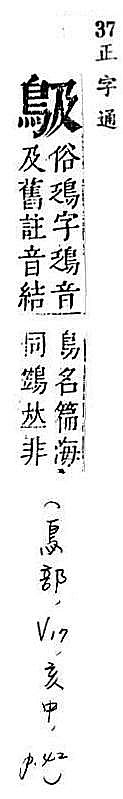 37 正字通
俗鵖字鵖音
及舊註音結
鳥名篇海
同鶛𠀤非
(鳥部, V17, 亥中, p.42)